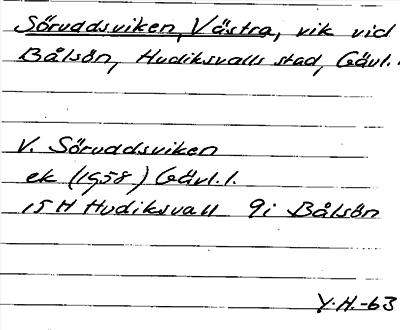 Sörvadsviken, Västra, vik vid
Bålsön, Hudiksvalls stad, Gävl.l.
V. Sörvadsviken
ek (1958) Gävl.l.
15H Hudiksvall 9i Bålsön
Y.H.-63